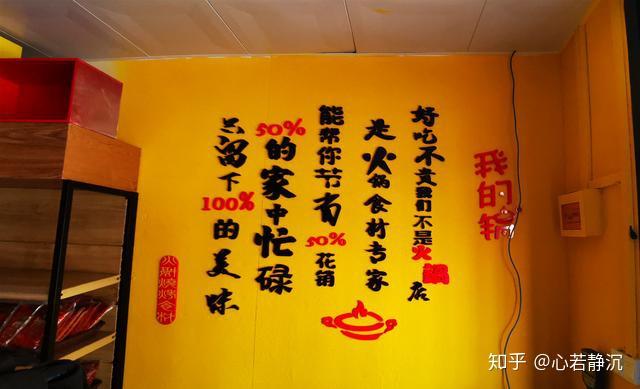 我的锅
好吃不贵我们不是火鍋店
是火锅食材专家
能帮你节省50%花销
50%的家中忙碌
只留下100%的美味
火涮燒烤食材
知乎 @心若静沉